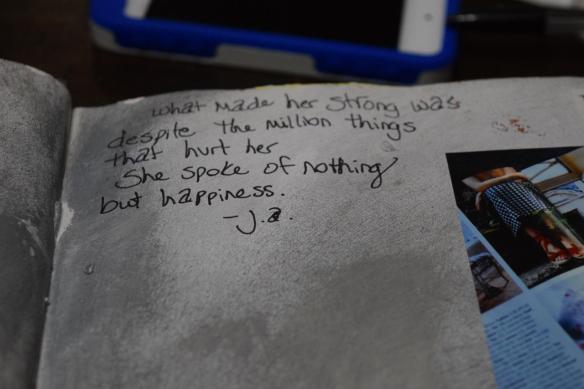 what made her strong was
despite the million things
that hurt her
She spoke of nothing
but happiness.
-J.a.